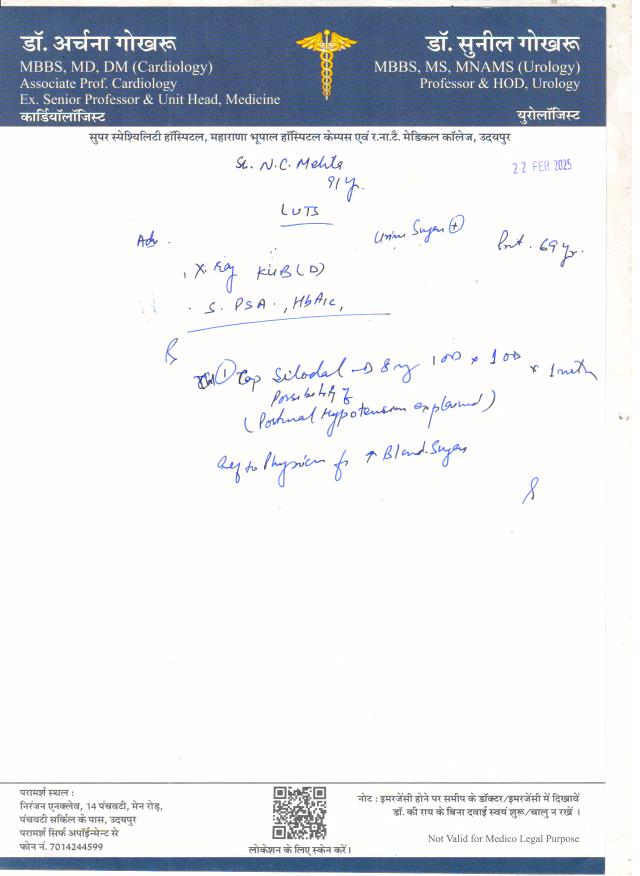 डॉ. अर्चना गोखरू
MBBS, MD, DM (Cardiology)
Associate Prof. Cardiology
Ex. Senior Professor & Unit Head, Medicine
कार्डियॉलॉजिस्ट
डॉ. सुनील गोखरू
MBBS, MS, MNAMS (Urology)
Professor & HOD, Urology
यूरोलॉजिस्ट
सुपर स्पेशियलिटी हॉस्पिटल, महाराणा भूपाल हॉस्पिटल केम्पस एवं र.ना.टै. मेडिकल कॉलेज, उदयपुर
N.C. Mehta
22 FEB 2025
91 yr.
LUTS
Urine Sugar (+)
Adv.
69 yr.
X-ray KUB (D)
S. PSA, HbA1c,
Rx
① Cap Silodal-D 8 mg 1 OD x 1 OD x 1 mth
Possibility of
(Postural Hypotension explained)
Ref to Physician for ↑ Blood Sugar
परामर्श स्थल :
निरंजन एनक्लेव, 14 पंचवटी, मेन रोड़,
पंचवटी सर्किल के पास, उदयपुर
परामर्श सिर्फ अपॉईन्मेन्ट से
फोन नं. 7014244599
लोकेशन के लिए स्केन करें।
नोट : इमरजेंसी होने पर समीप के डॉक्टर/इमरजेंसी में दिखावें
डॉ. की राय के बिना दवाई स्वयं शुरू/चालु न रखें ।
Not Valid for Medico Legal Purpose